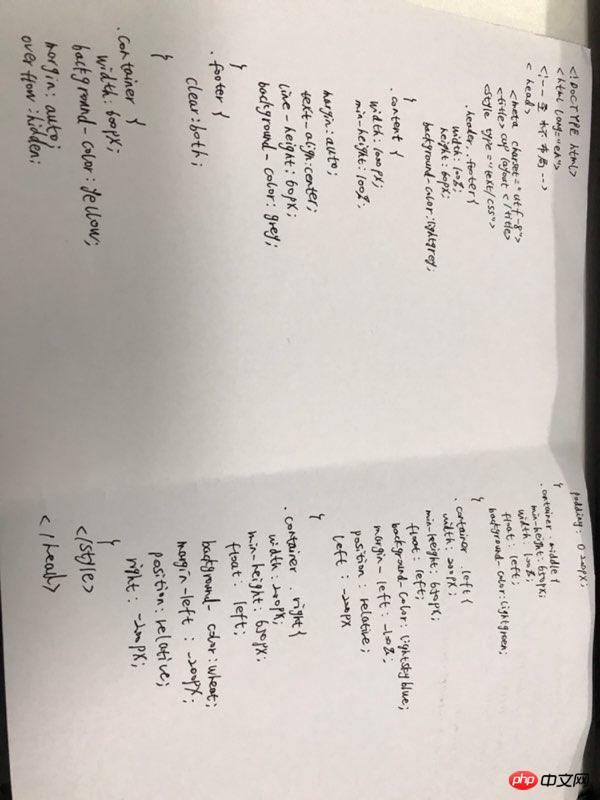 <!DOCTYPE html>
<html lang="en">
<!-- 圣杯布局 -->
<head>
<meta charset="utf-8">
<title> cup layout </title>
<style type="text/css">
.header .footer {
width: 100%;
height: 60px;
background-color: lightgrey;
.content {
width: 1000px;
min-height: 100%;
margin: auto;
text-align: center;
line-height: 60px;
background-color: grey;
}
.footer {
clear: both;
}
.container {
width: 600px;
background-color: yellow;
margin: auto;
overflow: hidden;
padding: 0 200px;
}
.container .middle {
min-height: 650px;
width: 100%;
float: left;
background-color: lightgreen;
}
.container .left {
width: 200px;
min-height: 650px;
float: left;
background-color: lightskyblue;
margin-left: -100%;
position: relative;
left: -200px
}
.container .right {
width: 200px;
min-height: 650px;
float: left;
background-color: wheat;
margin-left: -200px;
position: relative;
right: -200px;
}
</style>
</head>
php 中文网